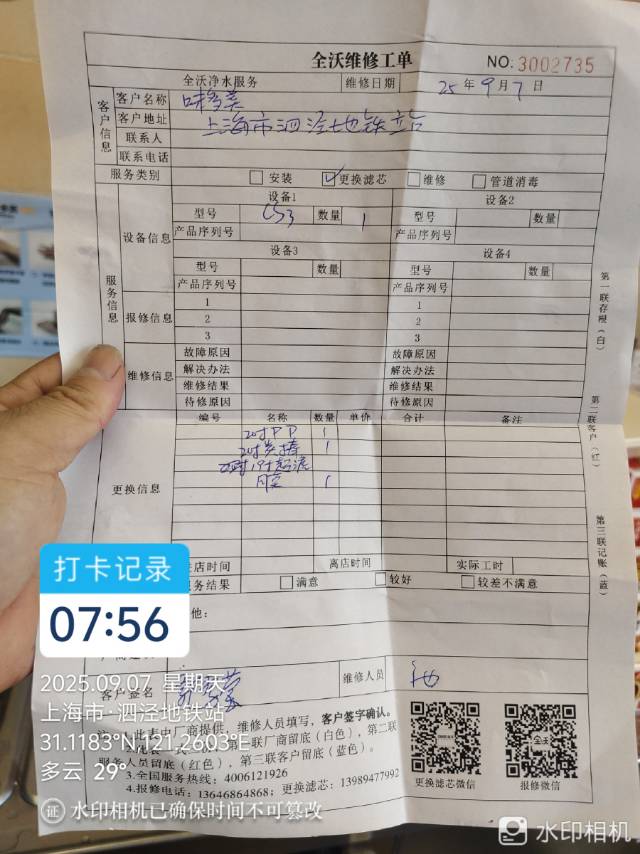 全沃维修工单
NO. 3002735
全沃净水服务 维修日期 25年9月7日
客户信息
客户名称 味多美
客户地址 上海市泗泾地铁站
联系人
联系电话
服务类别 安装 更换滤芯 维修 管道消毒
服务信息
设备信息
设备1 设备2
型号 CS3 数量 1 型号 数量
产品序列号 产品序列号
设备3 设备4
型号 数量 型号 数量
产品序列号 产品序列号
报修信息
1 1
2 2
3 3
维修信息
故障原因 故障原因
解决办法 解决办法
维修结果 维修结果
待修原因 待修原因
更换信息
编号 名称 数量 单价 合计 备注
20寸PP 1
20寸炭棒 1
1
进店时间 离店时间 实际工时
服务结果 满意 较好 较差不满意
他:
客户签名 维修人员
此表由厂商提供、维修人员填写，客户签字确认。
第一联厂商留底（白色）、第二联
服务人员留底（红色）、第三联客户留底（蓝色）。
3.全国服务热线：4006121926
4.报修电话：13646864868；更换滤芯：13989477992
更换滤芯微信 报修微信
全沃
第一联存根（白）
第二联客户（红）
第三联记账（蓝）
打卡记录
07:56
2025.09.07 星期天
上海市·泗泾地铁站
31.1183°N,121.2603°E
多云 29°
证 水印相机已确保时间不可篡改
水印相机